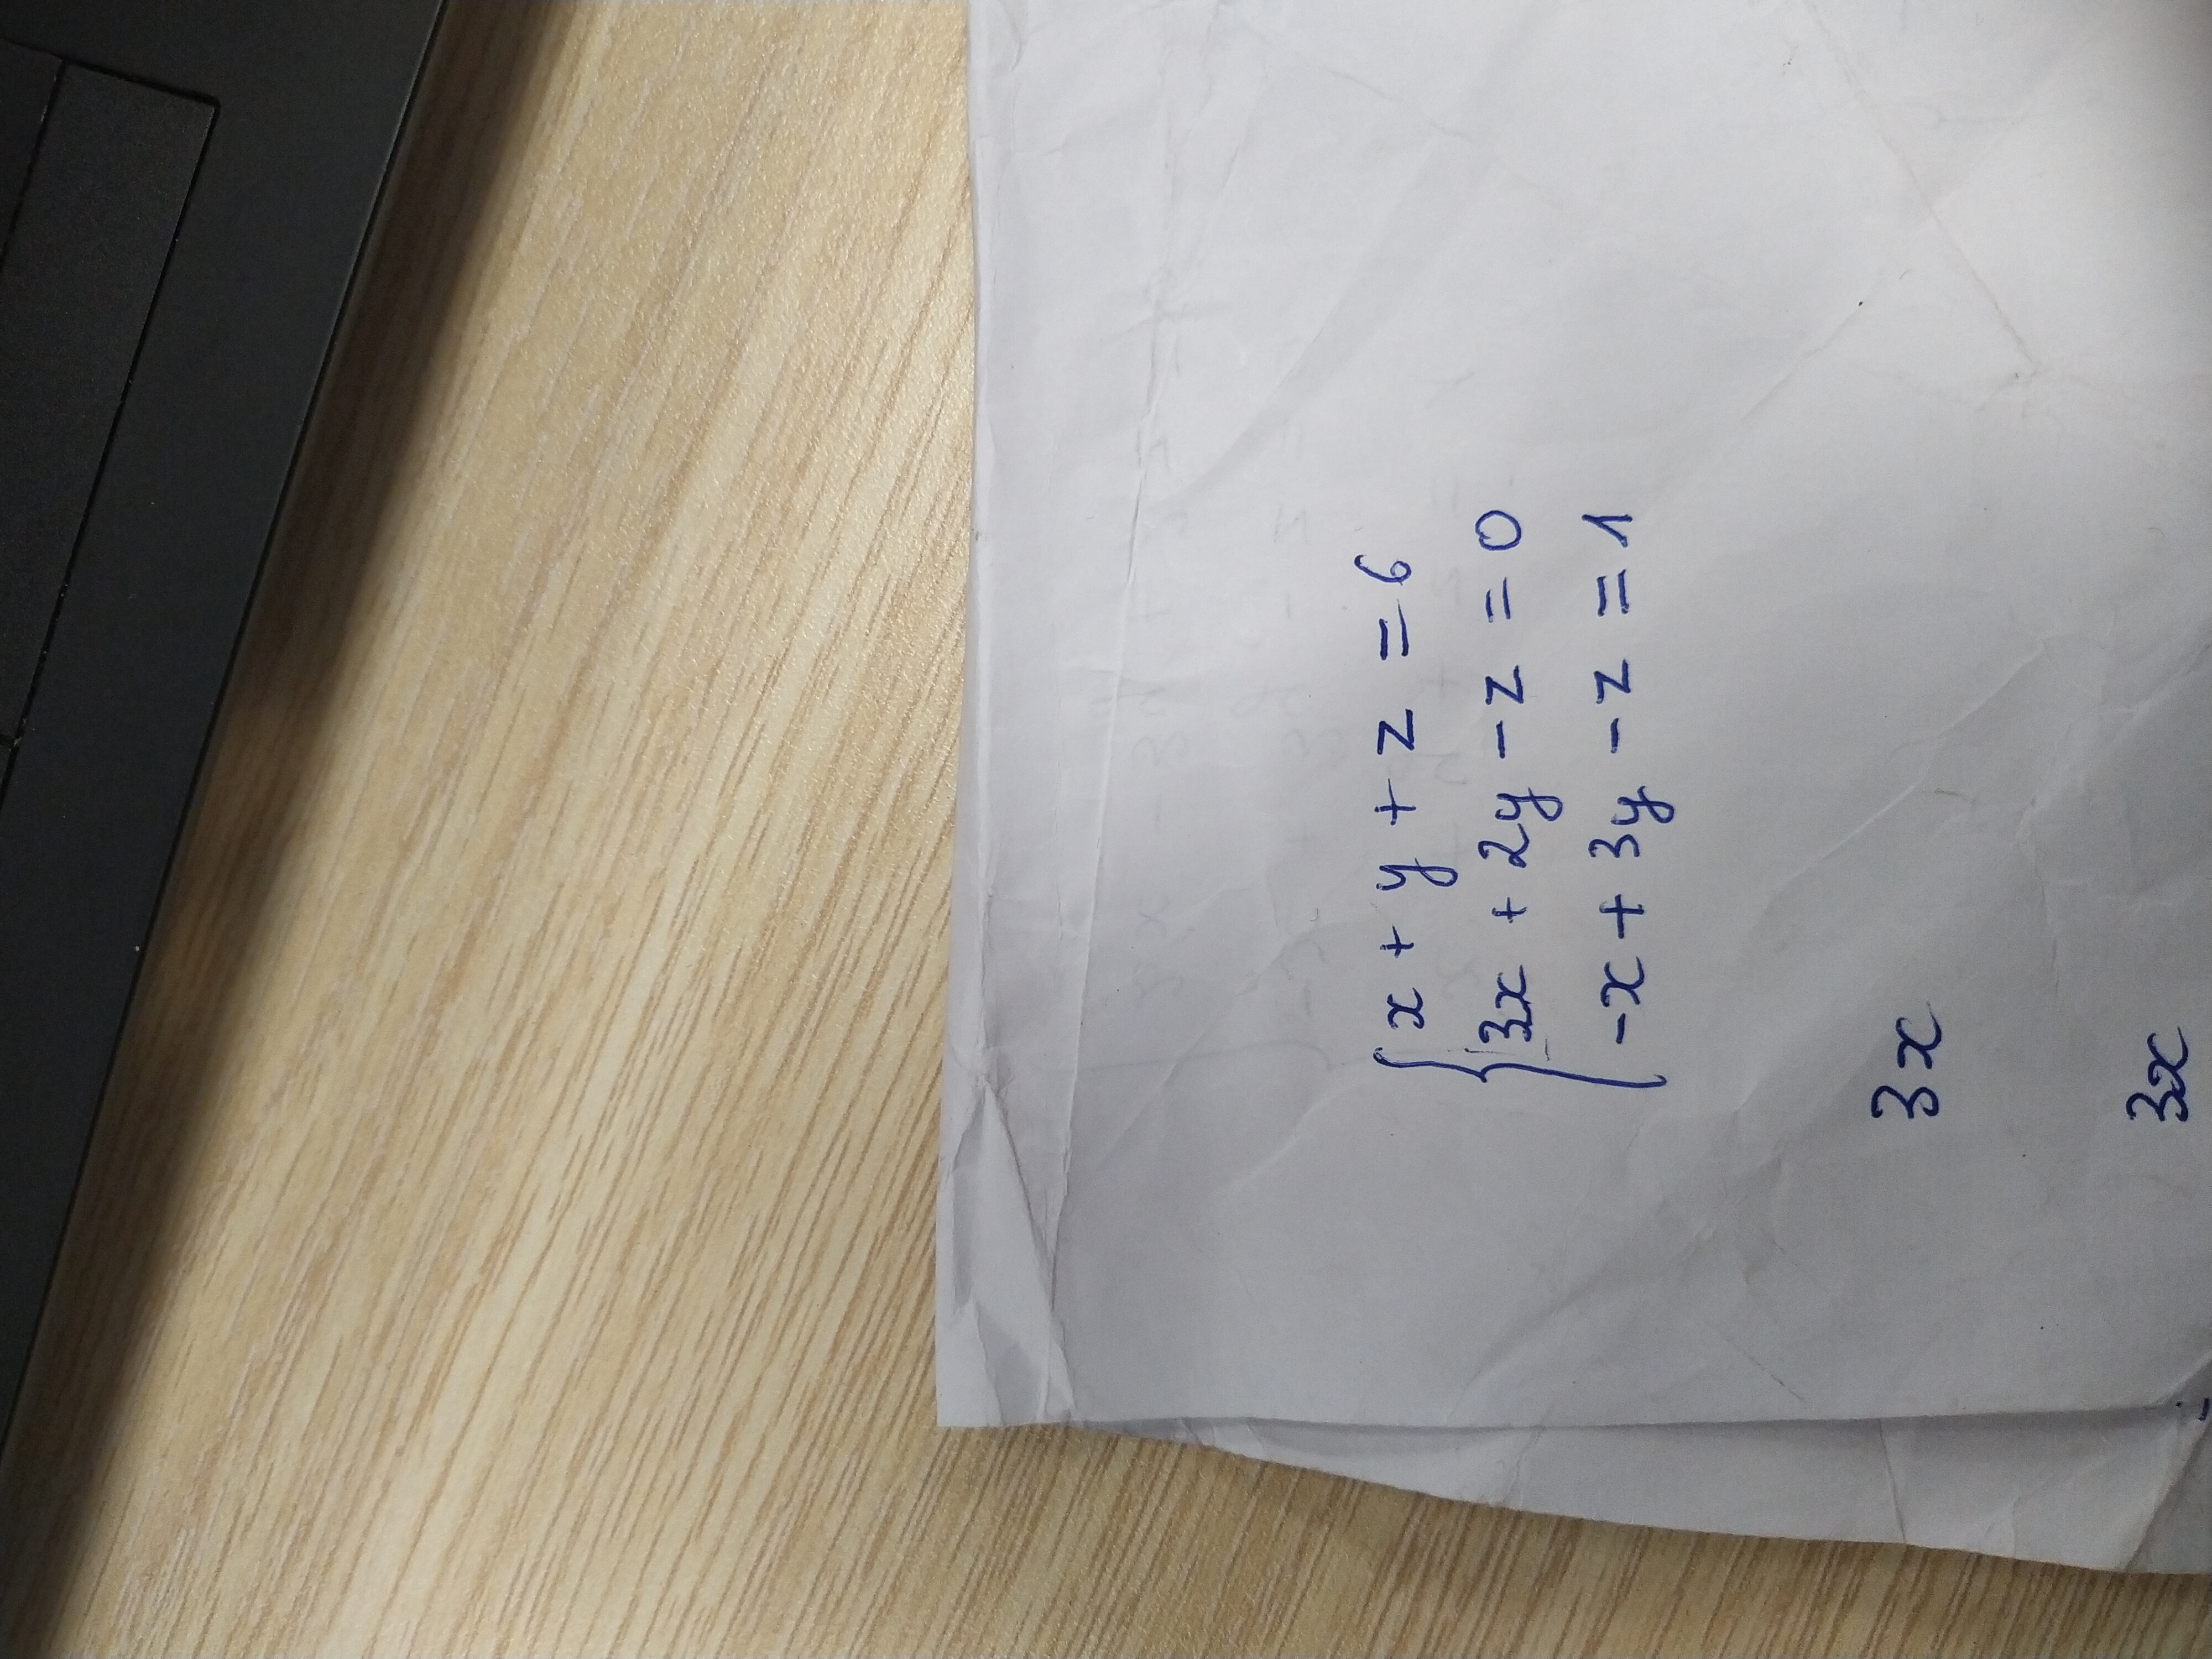 x + y + z = 6
3x + 2y - z = 0
-x + 3y - z = 1
3x
3x